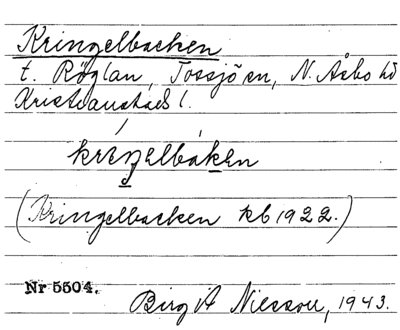 Kringelbacken
t. Röglan, Tossjö sn, N. Åsbo hd
Kristianstads l.
kreŋelbaken
(Kringelbacken kb 1922.)
Nr 5504.
Birgit Nilsson, 1943.